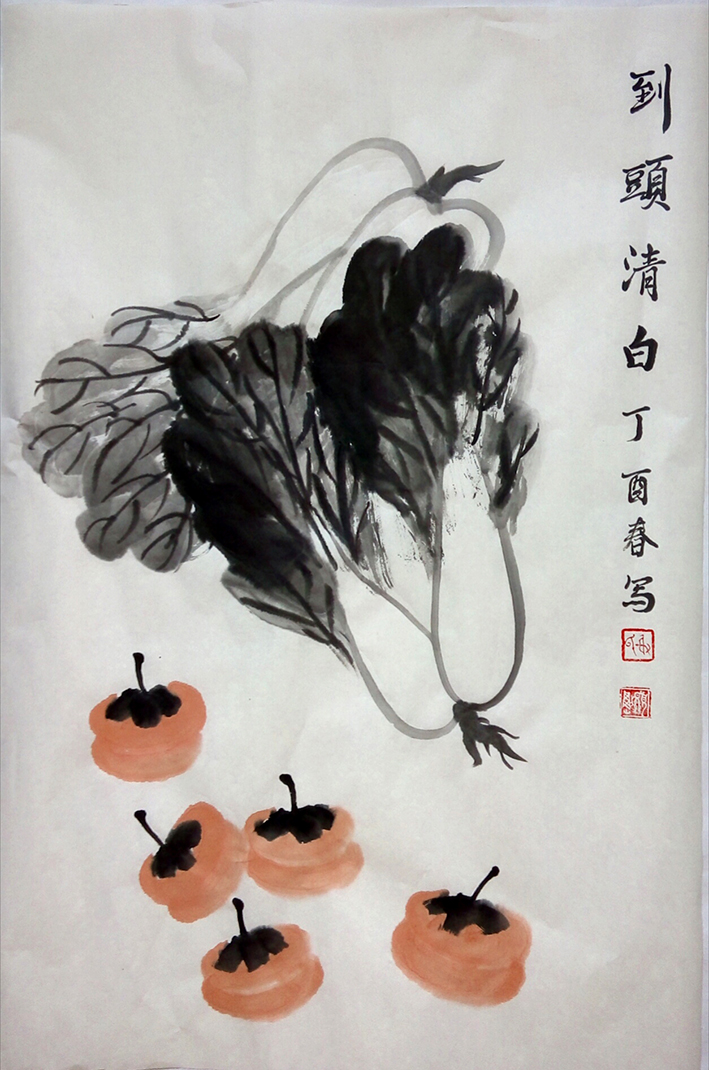 到頭清白丁酉春写